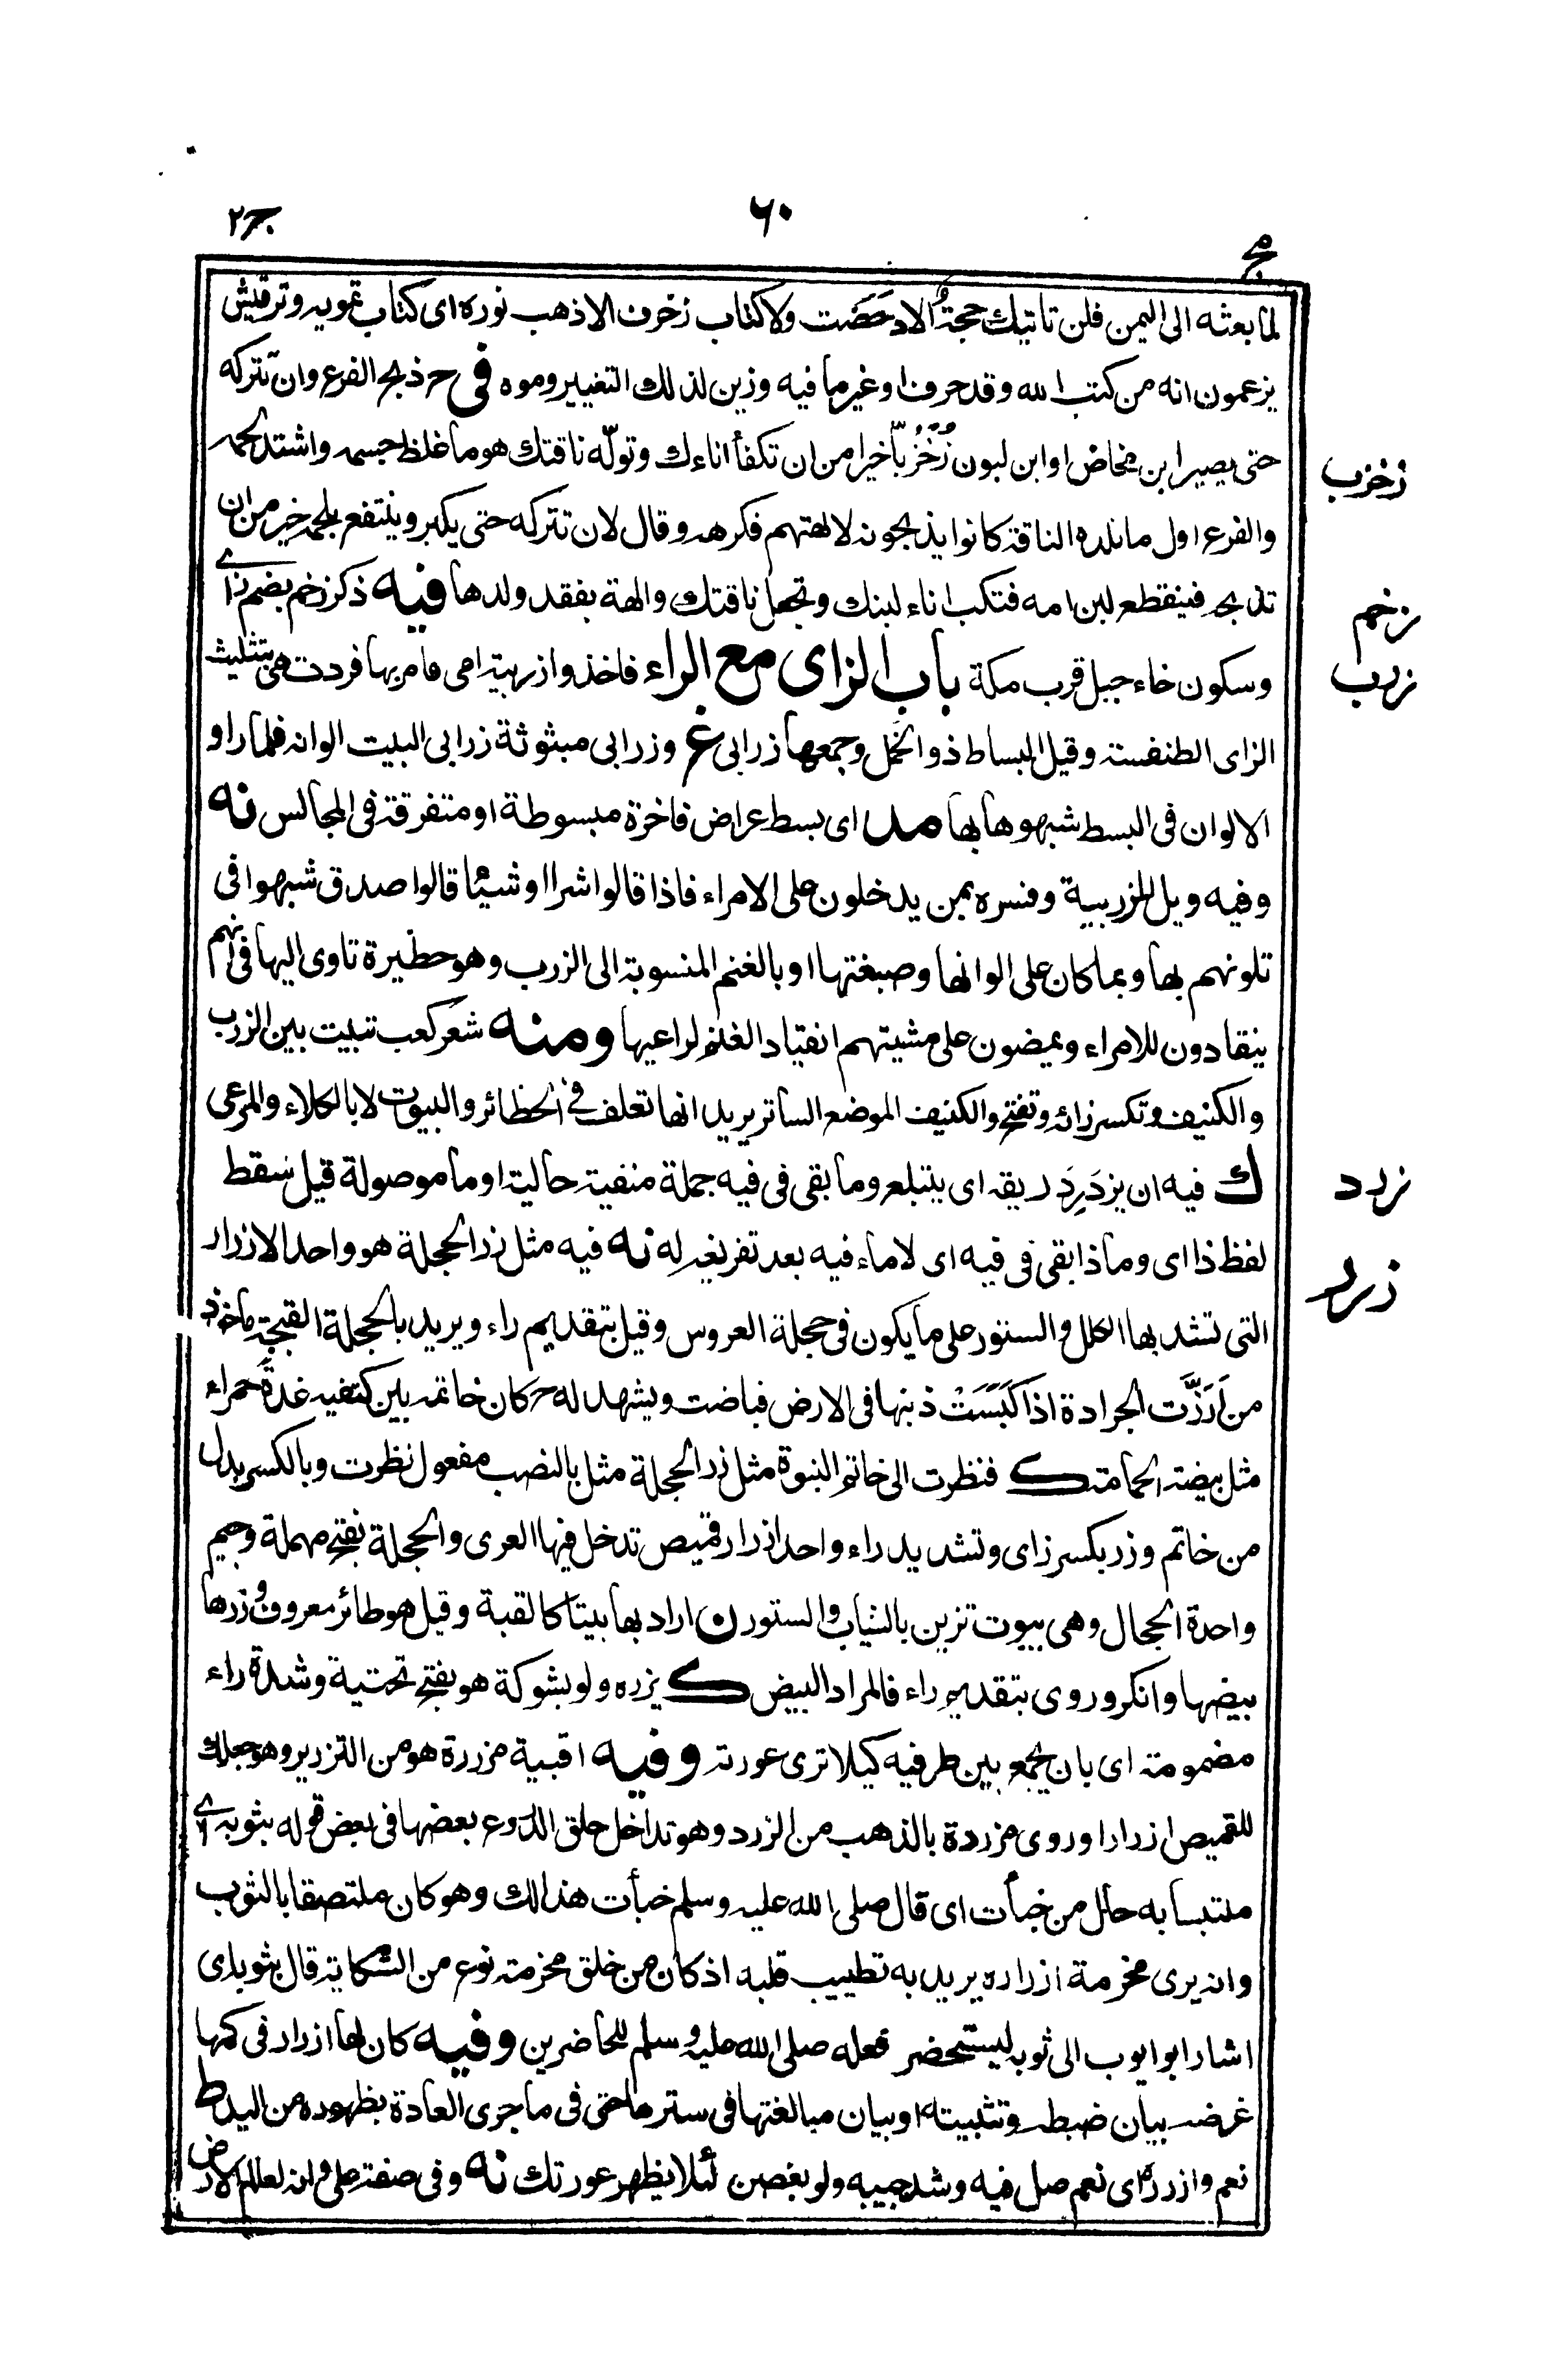 مج
٦٠
ج٢
لما بعثه الى اليمن فلن تاتيك حجة الا دحضت ولا كتاب زخرف الا ذهب نوره اى كتاب تمويه وترقيش
يزعمون انه من كتب الله وقد حرف او غير ما فيه وزين لذلك التغيير وموه فى ح ذبح الفرع وان تتركه
حتى يصير ابن مخاض او ابن لبون زُخْزُبًّا خيرا من ان تكفأ اناءك وتولّه ناقتك هو ما غلظ جسمه واشتد لحمه
زخزب
والفرع اول ما تلده الناقة كانوا يذبحونه لالهتهم فكرهه وقال لان تتركه حتى يكبر وينتفع بلحمه خير من ان
تذبحه فينقطع لبن امه فتكب اناء لبنك وتجعل ناقتك والهة بفقد ولدها فيه ذكر زخم بضم زاى
زخم
وسكون خاء جبل قرب مكة باب الزاى مع الراء فاخذوا زربية امى فامر بها فردت هى بتثليث
زرب
الزاى الطنفسة وقيل البساط ذو الخمل وجمعها زرابى غ وزرابى مبثوثة زرابى البيت الوانه فلما راو
الالوان فى البسط شبهوها بها مد اى بسط عراض فاخرة مبسوطة او متفرقة فى المجالس نه
وفيه ويل للزربية وفسره بمن يدخلون على الامراء فاذا قالوا شرا او شيئا قالوا صدق شبهوا فى
تلونهم بها وبما كان على الوانها وصبغتها او بالغنم المنسوبة الى الزرب وهو حظيرة تاوى اليها فى انهم
ينقادون للامراء ويمضون على مشيتهم انقياد الغنم لراعيها ومنه شعر كعب تبيت بين الزرب
والكنيف وتكسر زائه وتفتح والكنيف الموضع الساتر يريد انها تعلف فى الحظائر والبيوت لا بالكلاء والمرعى
ك فيه ان يزدَرِدَ ريقه اى يبتلع وما بقى فى فيه جملة منفية حالية او ما موصولة قيل سقط
زرد
لفظ ذا اى وماذا بقى فى فيه اى لا ماء فيه بعد تفريغه له نه فيه مثل زر الحجلة هو واحد الازرار
زرر
التى تشد بها الكلل والستور على ما يكون فى حجلة العروس وقيل بتقديم راء ويريد بالحجلة القبجة ماخوذ
من اَرَزَّت الجرادة اذا كَبَسَتْ ذنبها فى الارض فباضت ويشهد له ح كان خاتمه بين كتفيه غدة حمراء
مثل بيضة الحمامة ك فنظرت الى خاتم النبوة مثل زر الحجلة مثل بالنصب مفعول نظرت وبالكسر بدل
من خاتم وزر بكسر زاى وتشديد راء واحد ازرار قميص تدخل فيها العرى والحجلة بفتح مهملة وجيم
واحدة الحجال وهى بيوت تزين بالثياب والستور ن اراد بها بيتا كالقبة وقيل هو طائر معروف وزرها
بيضها وانكر وروى بتقديم راء فالمراد البيض ك يزره ولو بشوكة هو بفتح تحتية وشدة راء
مضمومة اى بان يجمع بين طرفيه كيلا ترى عورته وفيه اقبية مزررة هو من التزرير وهو جعلك
للقميص ازرارا وروى مزردة بالذهب من الزرد وهو تداخل حلق الدروع بعضها فى بعض قوله بثوبه اى
ملتبسا به حال من خبأت اى قال صلى الله عليه وسلم خبأت هذا لك وهو كان ملتصقا بالثوب
وانه يرى مخرمة ازراره يريد به تطييب قلبه اذ كان من خلق مخرمة نوع من الشكاية قال بثوبه اى
اشار ابو ايوب الى ثوبه ليستحضر فعله صلى الله عليه وسلم للحاضرين وفيه كان لها ازرار فى كمها
غرضه بيان ضبطه وتثبيته او بيان مبالغتها فى سترها حتى فى ما جرى العادة بظهوره من اليد ط
نعم وازرره اى نعم صل فيه وشد جيبه ولو بغصن لئلا يظهر عورتك نه وفى صفة على وانه لعالم الارض